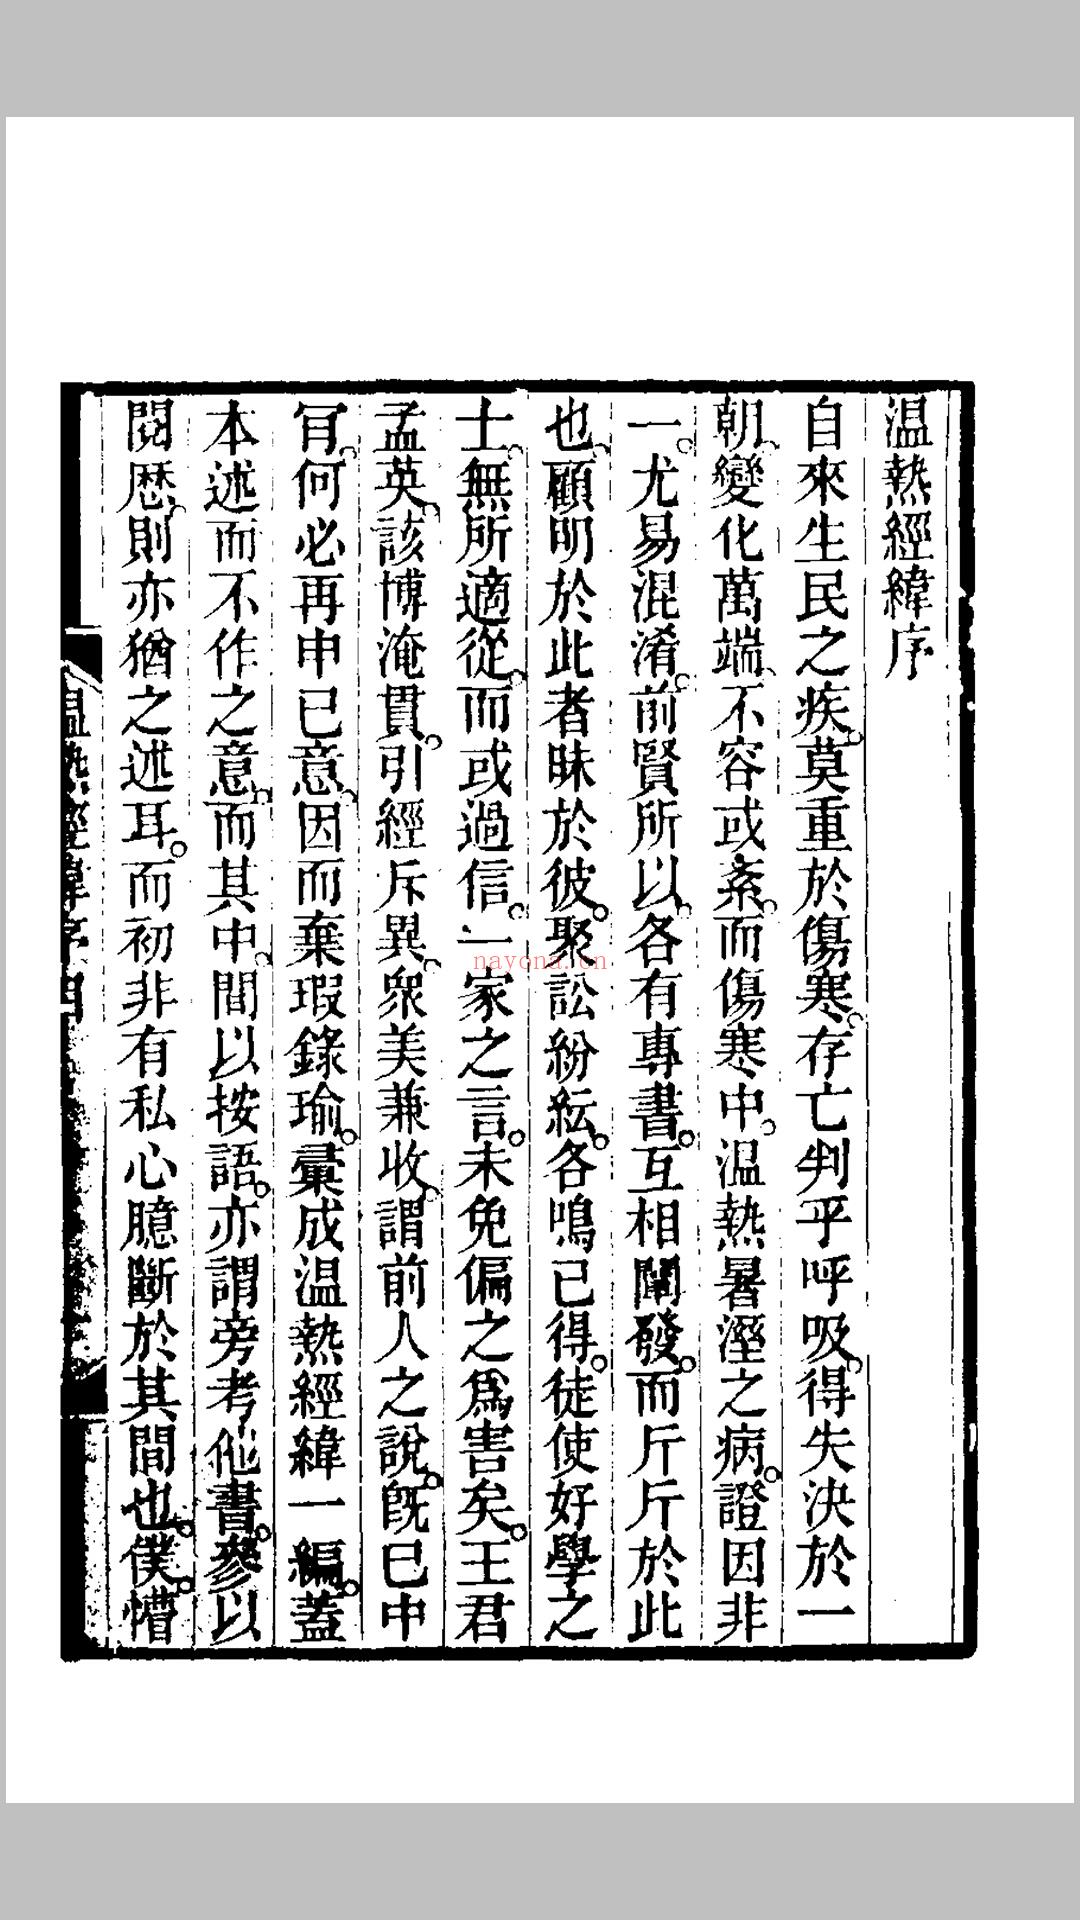 温熱經緯序
自來生民之疾。莫重於傷寒。存亡判乎呼吸。得失決於一
朝。變化萬端。不容或紊。而傷寒中。温熱暑溼之病。證因非
一。尤易混淆。前賢所以。各有專書。互相闡發。而斤斤於此
也。顧明於此者昧於彼。聚訟紛紜。各鳴已得。徒使好學之
士。無所適從。而或過信。一家之言。未免偏之爲害矣。王君
孟英。該博淹貫。引經斥異。衆美兼收。謂前人之說。旣已中
肎。何必再申已意。因而棄瑕錄瑜。彙成温熱經緯一編。蓋
本述而不作之意。而其中。間以按語。亦謂旁考他書。參以
閱歷。則亦猶之述耳。而初非有私心臆斷於其間也。僕。懵
温熱經緯序 四
nayona.cn